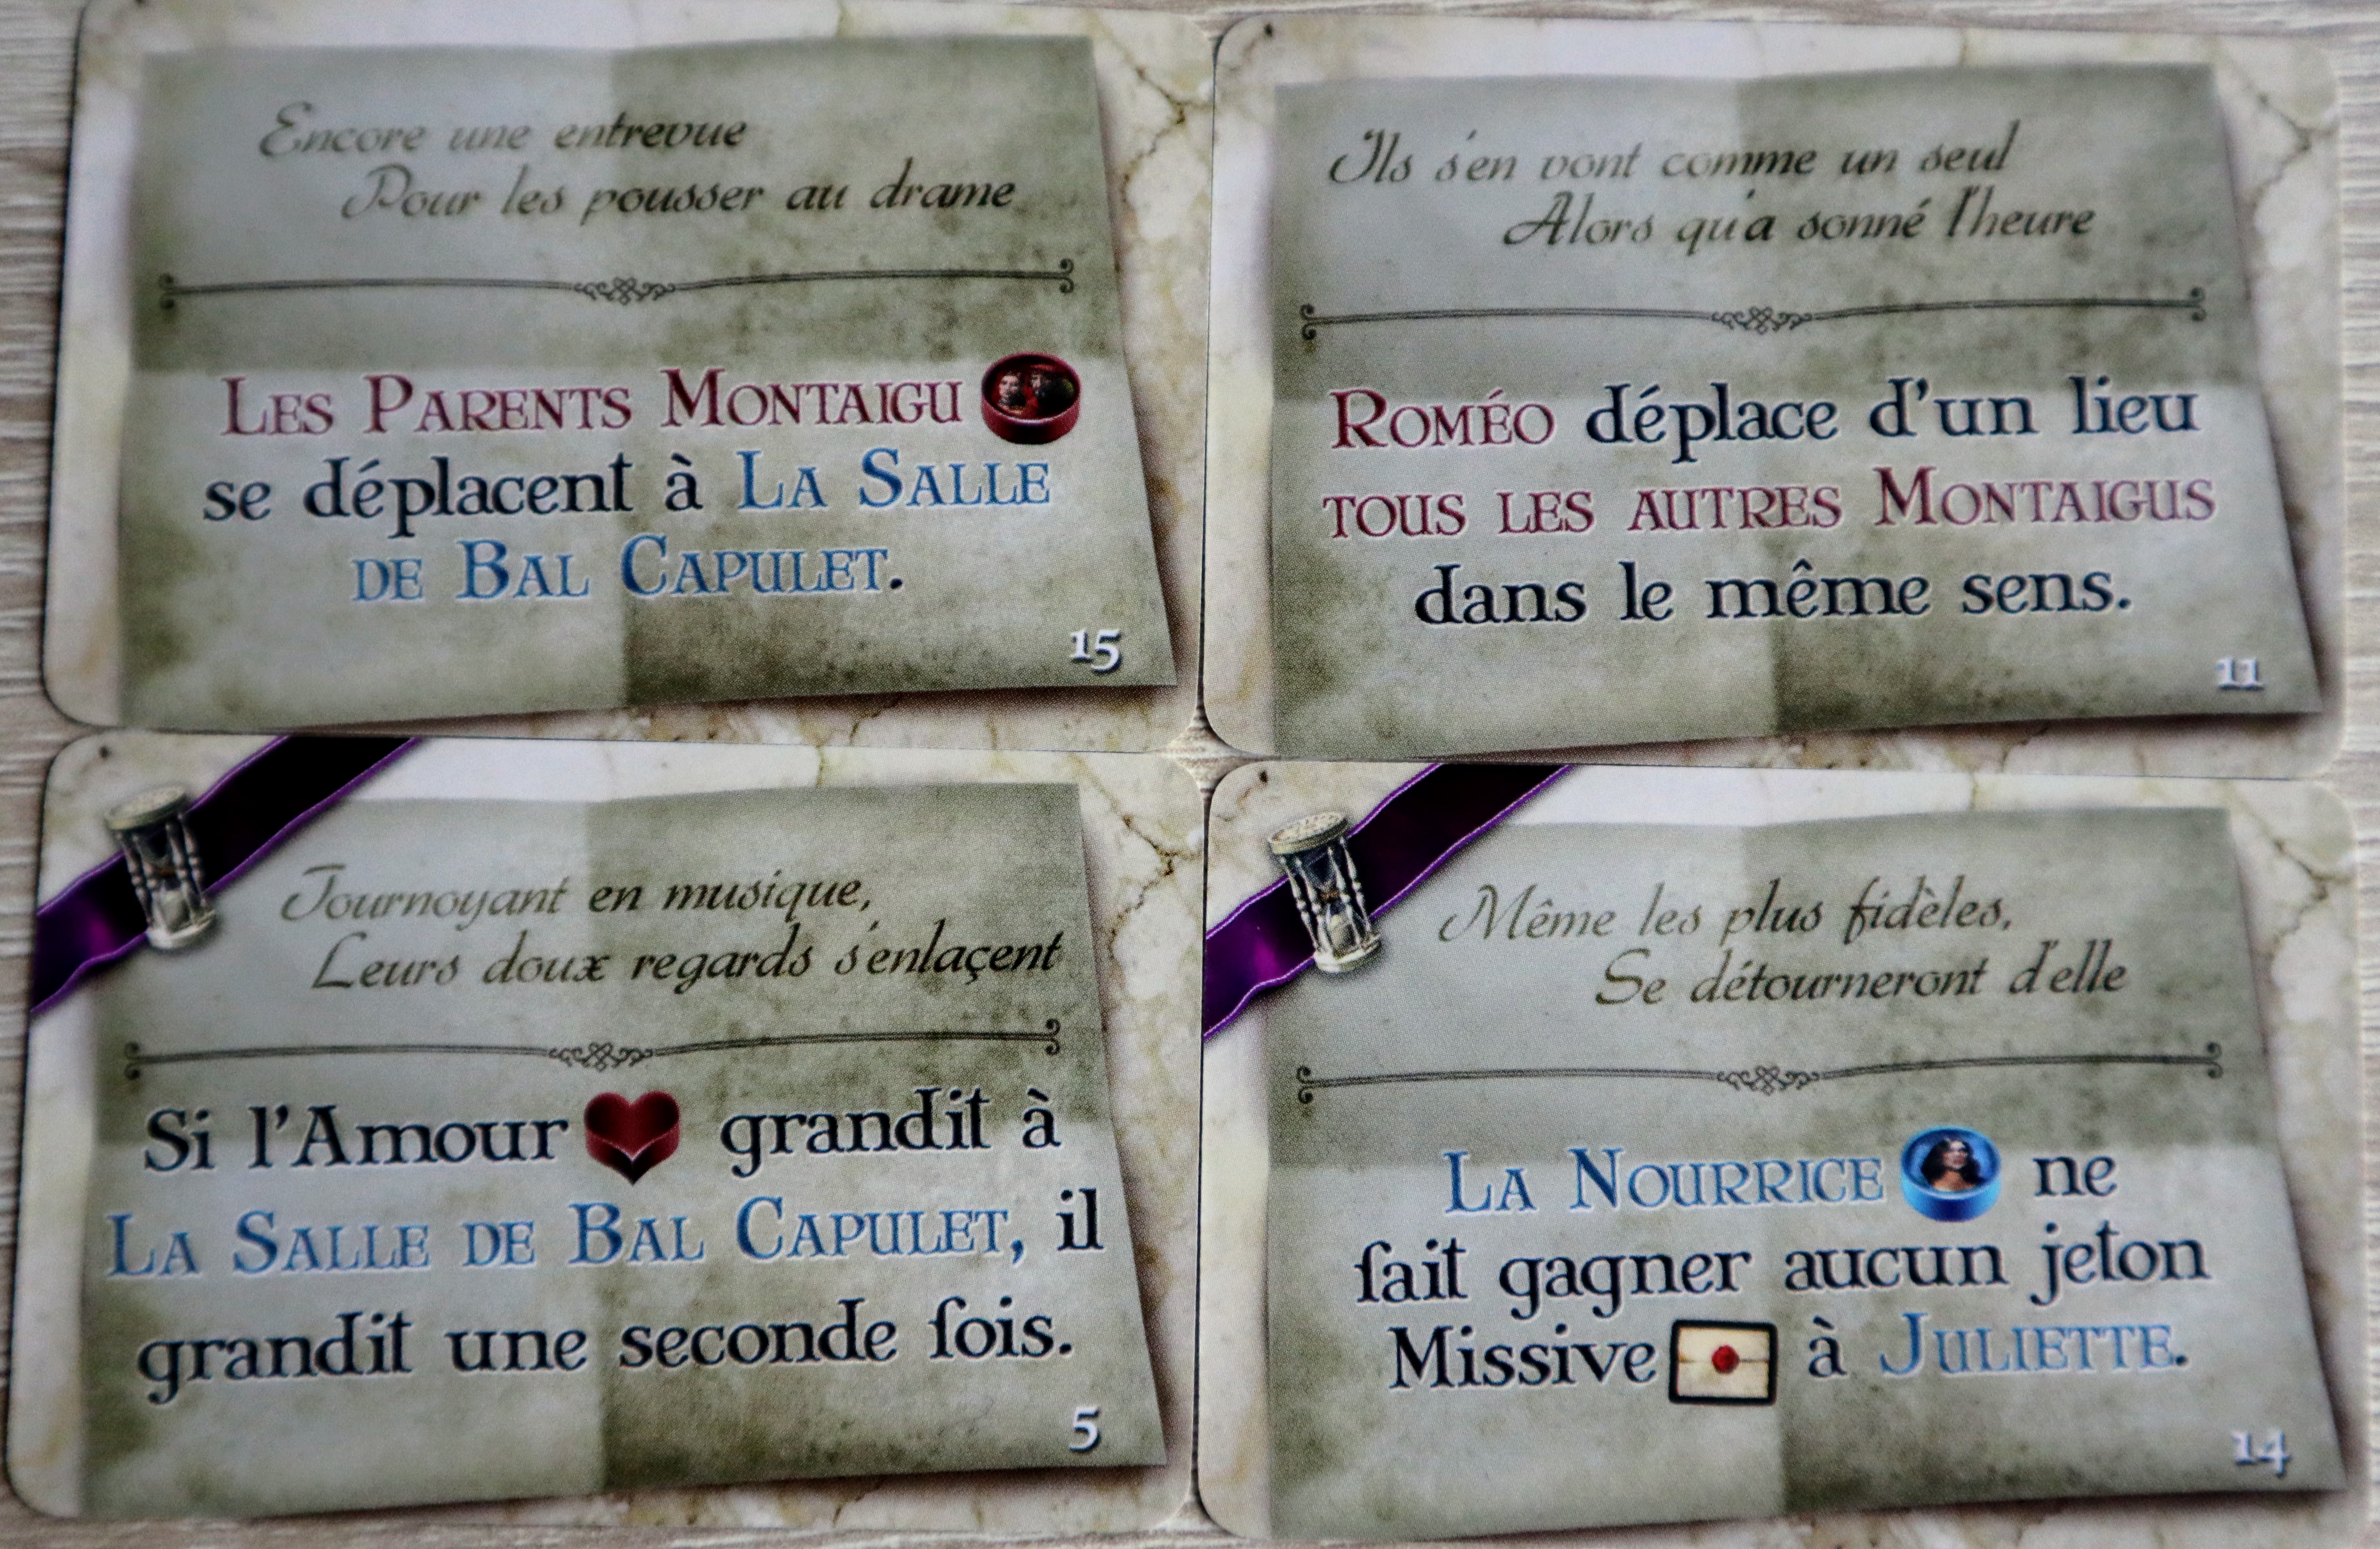 Encore une entrevue
Pour les pousser au drame
LES PARENTS MONTAIGU
se déplacent à LA SALLE
DE BAL CAPULET.
15
Ils s'en vont comme un seul
Alors qu'a sonné l'heure
ROMÉO déplace d'un lieu
TOUS LES AUTRES MONTAIGUS
dans le même sens.
11
Tournoyant en musique,
Leurs doux regards s'enlaçent
Si l'Amour grandit à
LA SALLE DE BAL CAPULET, il
grandit une seconde fois.
5
Même les plus fidèles,
Se détourneront d'elle
LA NOURRICE ne
fait gagner aucun jeton
Missive à JULIETTE.
14